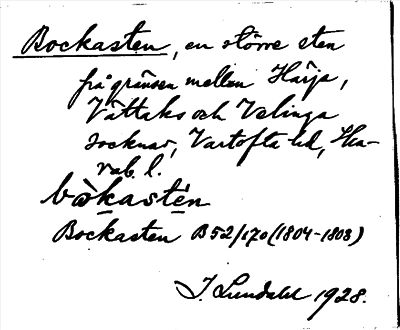 Bockasten, en större sten
på gränsen mellan Härja,
Vättaks och Velinga
socknar, Vartofta hd, Ska-
rab. l.
bòkastén
Bockasten B52/170 (1804-1808)
J. Lundahl 1928.